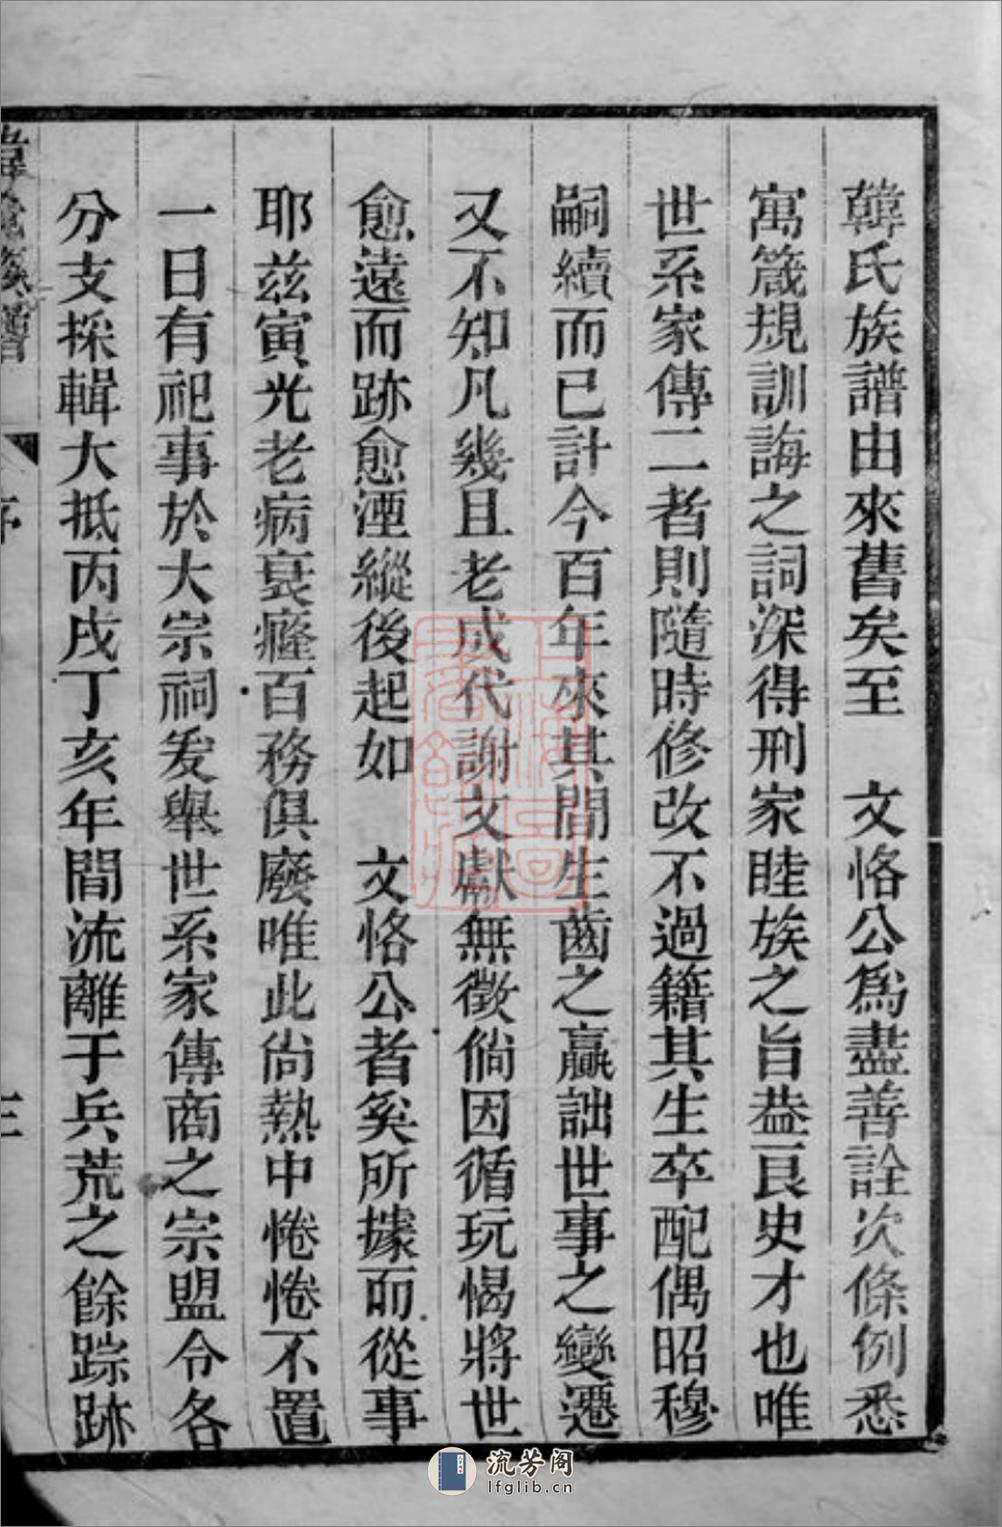 韓氏族譜由來舊矣至　文恪公爲盡善詮次條例悉
寓箴規訓誨之詞深得刑家睦族之旨益良史才也唯
世系家傳二者則隨時修改不過籍其生卒配偶昭穆
嗣續而已計今百年來其間生齒之贏詘世事之變遷
又不知凡幾且老成代謝文獻無徵倘因循玩愒將世
愈遠而跡愈湮縱後起如　文恪公者奚所據而從事
耶兹寅光老病衰癃百務俱廢唯此尙熱中惓惓不置
一日有祀事於大宗祠爰舉世系家傳商之宗盟令各
分支採輯大抵丙戌丁亥年間流離于兵荒之餘踪跡
流芳阁
lfglib.cn